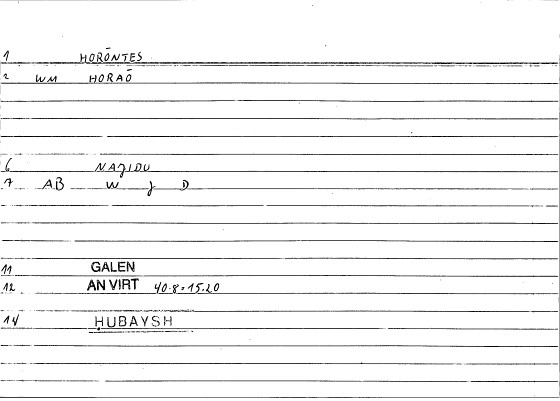 1 HORŌNTES
2 WM HORAŌ
6 NAJIDU
7 AB W J D
11 GALEN
12 AN VIRT 40.8=15.20
14 ḤUBAYSH